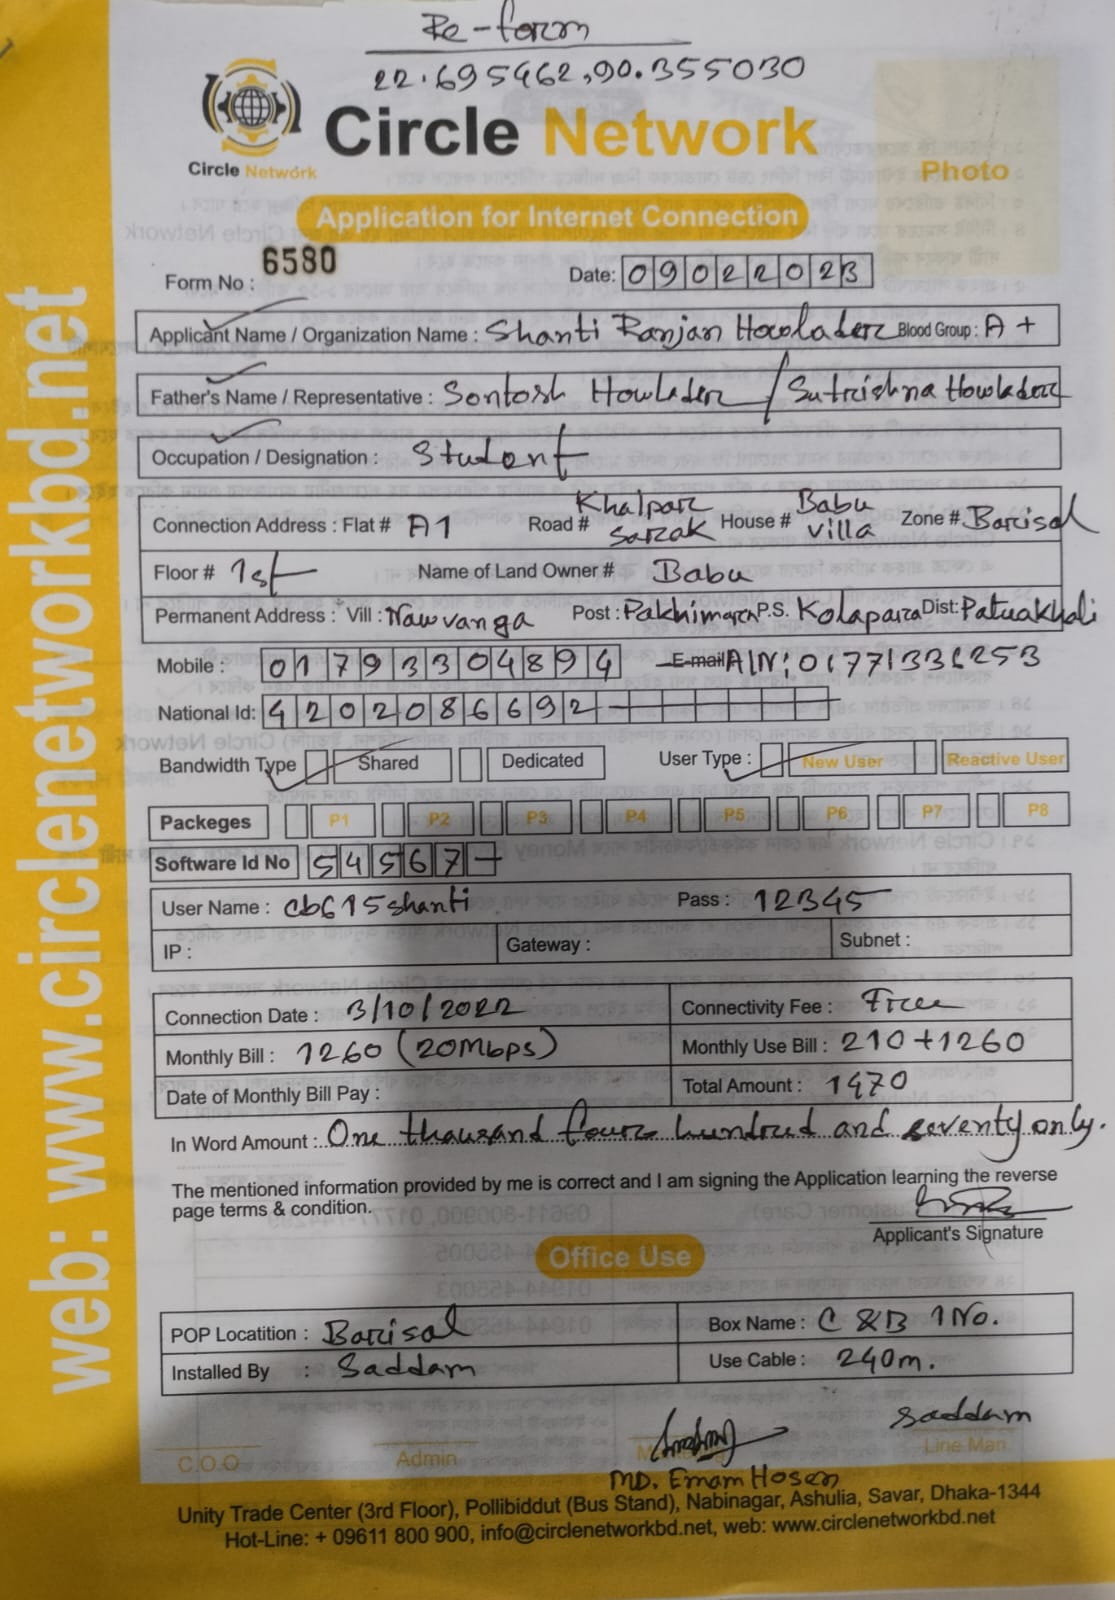 Re-form
22.695462,90.355030
Circle Network
Circle Network
Photo
Application for Internet Connection
Form No : 6580
Date: 09022023
Applicant Name / Organization Name : Shanti Ranjan Howlader Blood Group : A +
Father's Name / Representative : Sontosh Howlader / Sutrishna Howlader
Occupation / Designation : Student
Connection Address : Flat # A1 Road # Khalpar Sarak House # Babu Villa Zone # Barisal
Floor # 1st Name of Land Owner # Babu
Permanent Address : Vill : Nawvanga Post : Pakhimara P.S. Kolapara Dist: Patuakhali
Mobile : 01793304894 E-mail A/N: 01771336253
National Id: 4202086692
Bandwidth Type Shared Dedicated User Type : New User Reactive User
Packeges P1 P2 P3 P4 P5 P6 P7 P8
Software Id No 54567
User Name : cb615shanti Pass : 12345
IP : Gateway : Subnet :
Connection Date : 3/10/2022 Connectivity Fee : Free
Monthly Bill : 1260 (20Mbps) Monthly Use Bill : 210+1260
Date of Monthly Bill Pay : Total Amount : 1470
In Word Amount : One thousand four hundred and seventy only.
The mentioned information provided by me is correct and I am signing the Application learning the reverse
page terms & condition.
Applicant's Signature
Office Use
POP Locatition : Barisal Box Name : C & B 1 No.
Installed By : Saddam Use Cable : 240m.
Saddam
C.O.O Admin Line Man
MD. Emam Hosen
Unity Trade Center (3rd Floor), Pollibiddut (Bus Stand), Nabinagar, Ashulia, Savar, Dhaka-1344
Hot-Line: + 09611 800 900, info@circlenetworkbd.net, web: www.circlenetworkbd.net
web: www.circlenetworkbd.net